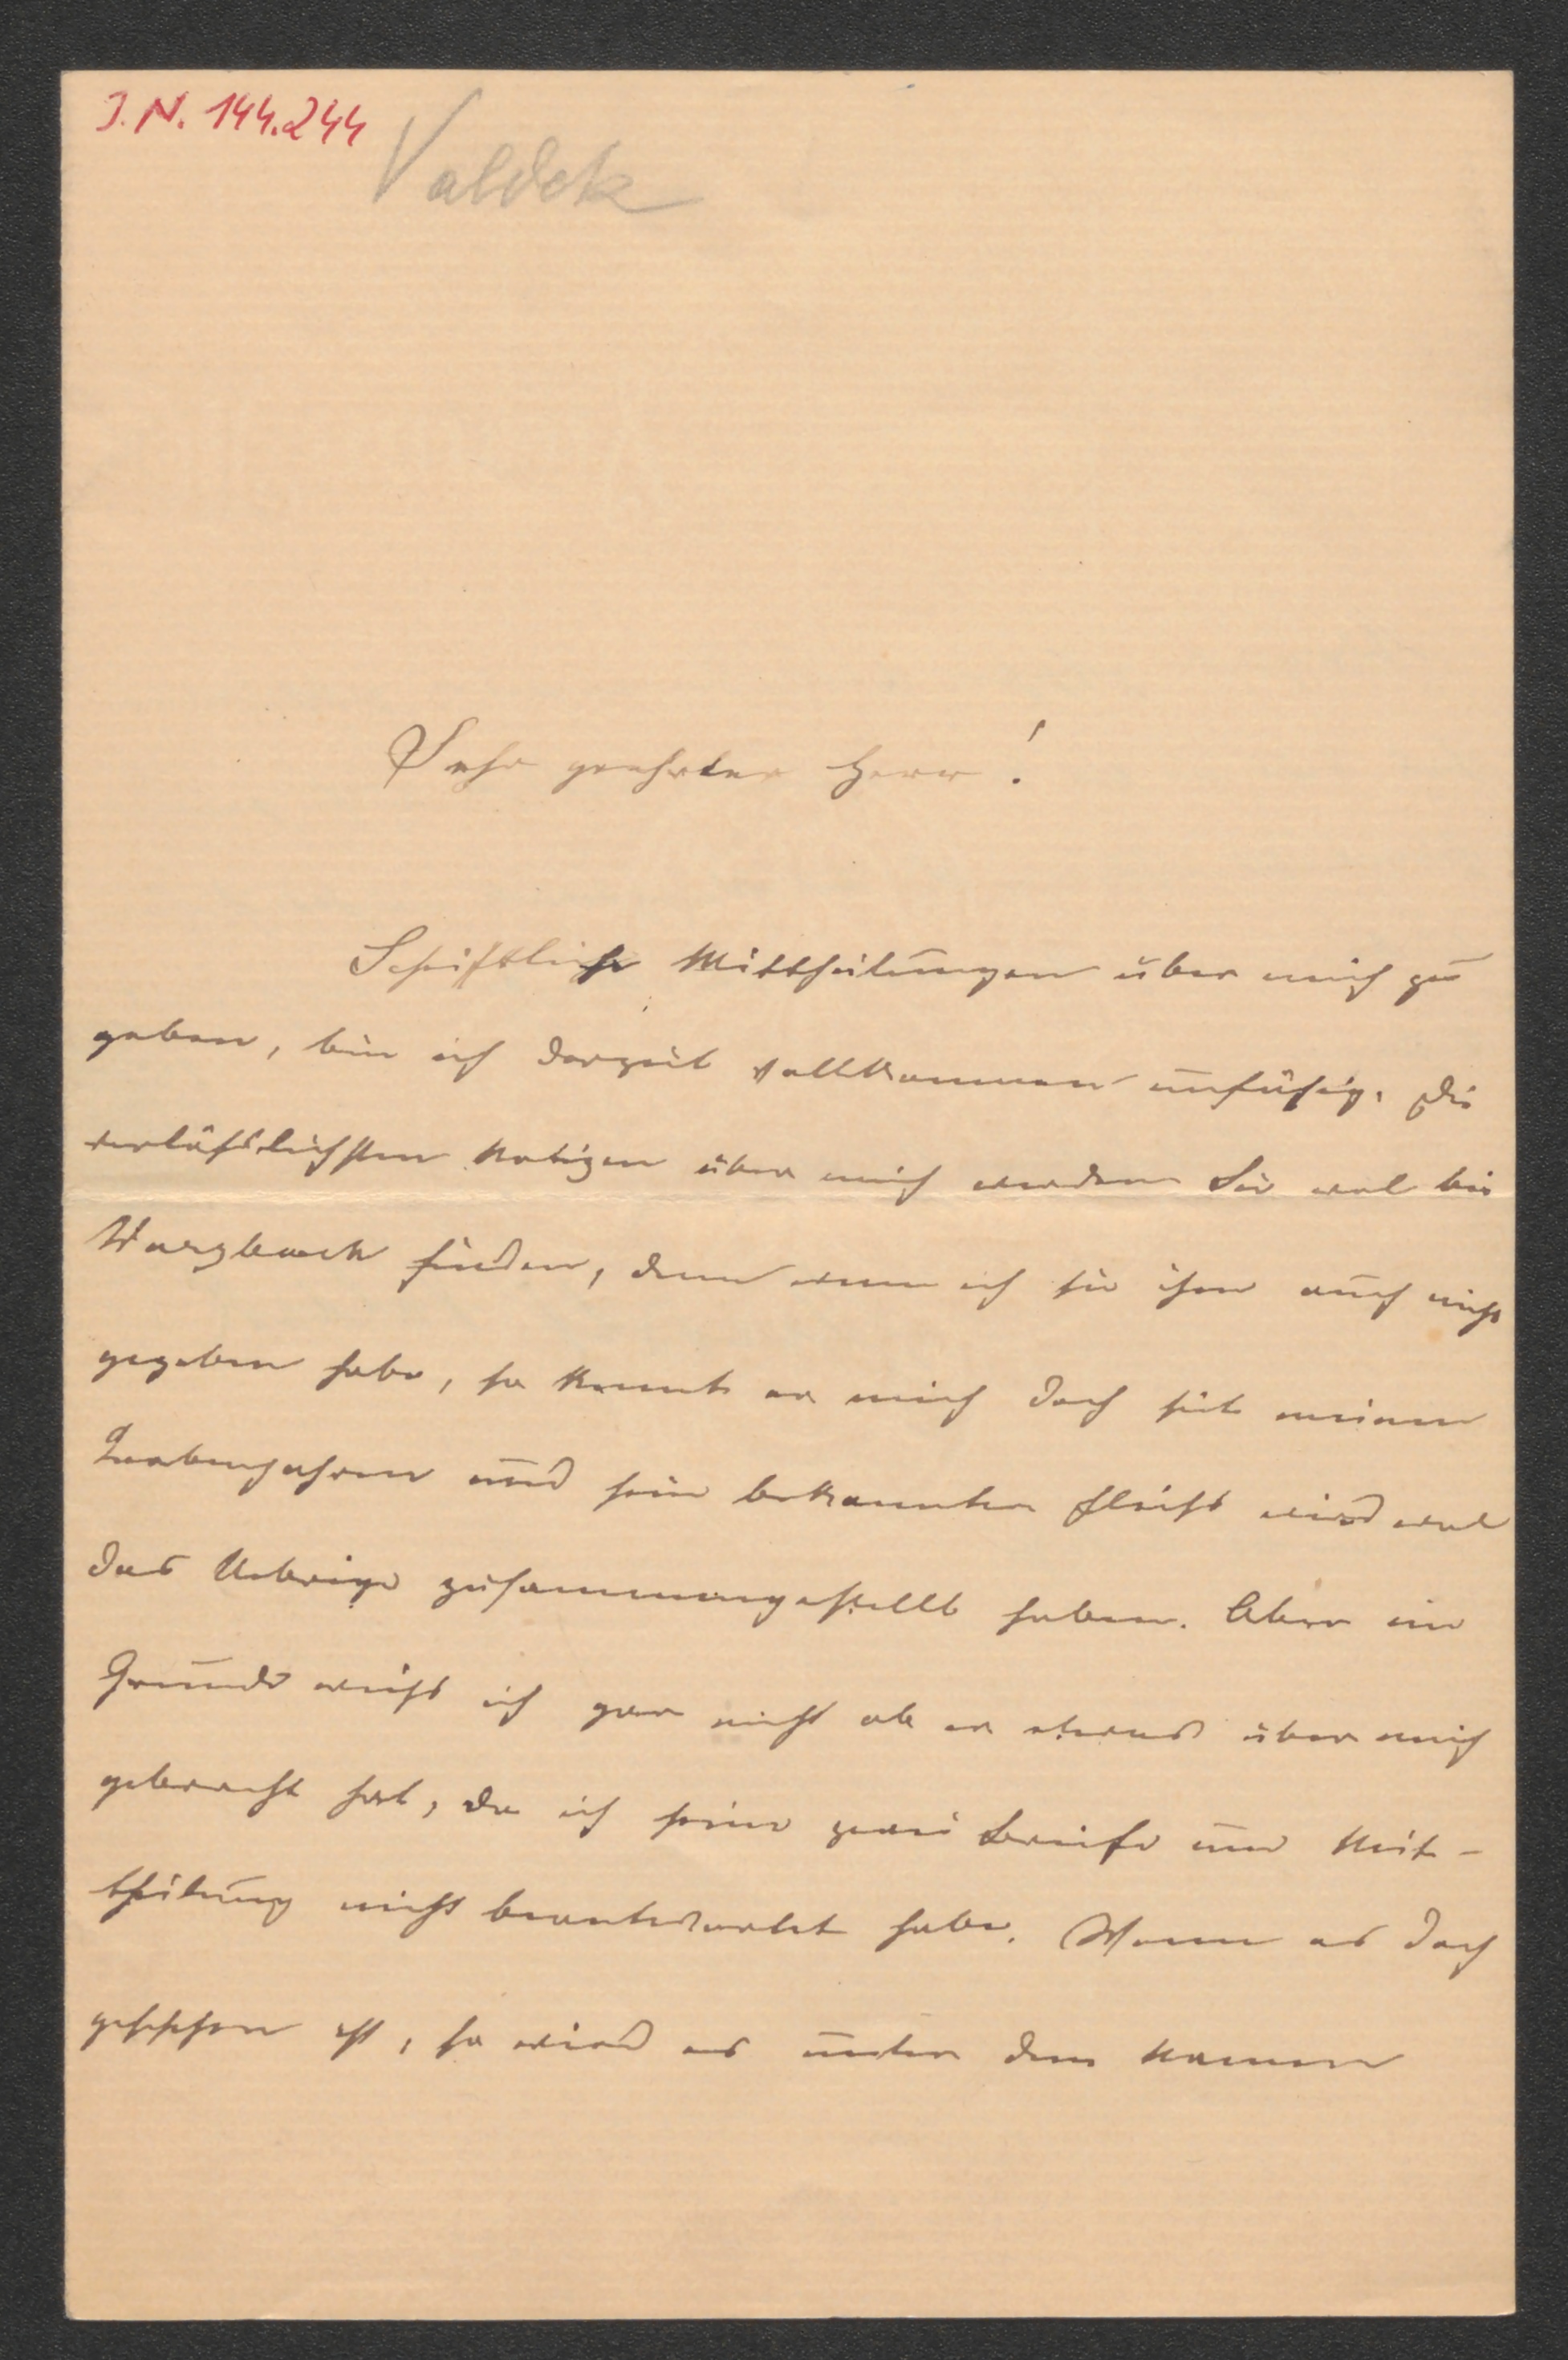 J. N. 144.244
Valdek
Sehr geehrter Herr!
Schriftliche Mittheilungen über mich zu
geben, bin ich derzeit vollkommen unfähig. Die
verläßlichsten Notizen über mich werden Sie wol bei
Wurzbach finden, denn wenn ich sie ihm auch nicht
gegeben habe, so kennt er mich doch seit meinen
Knabenjahren und sein bekannter Fleiß wird wol
das Uebrige zusammengestellt haben. Aber im
Grunde weiß ich gar nicht ob er etwas über mich
gebracht hat, da ich seine zwei Briefe um Mit-
theilung nicht beantwortet habe. Wenn es doch
geschehen ist, so wird es unter dem Namen